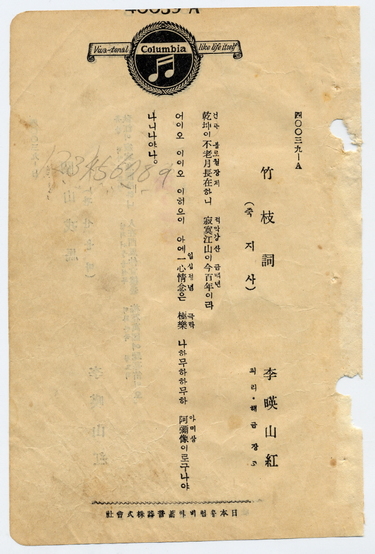 40039-A
Viva-tonal Columbia like life itself
四〇〇三九—A
竹枝詞
(죽지사)
李暎山紅
피리·해금 장고
건곤 불로월장재 적막강산 금백년
乾坤이不老月長在하니 寂寞江山이今百年이라
어이오 이이오 이히요이 아에
일심정념 극락 아미상
一心情念은 極樂 나하무하하무하 阿彌像이로구나야
나니나야나.
23456789